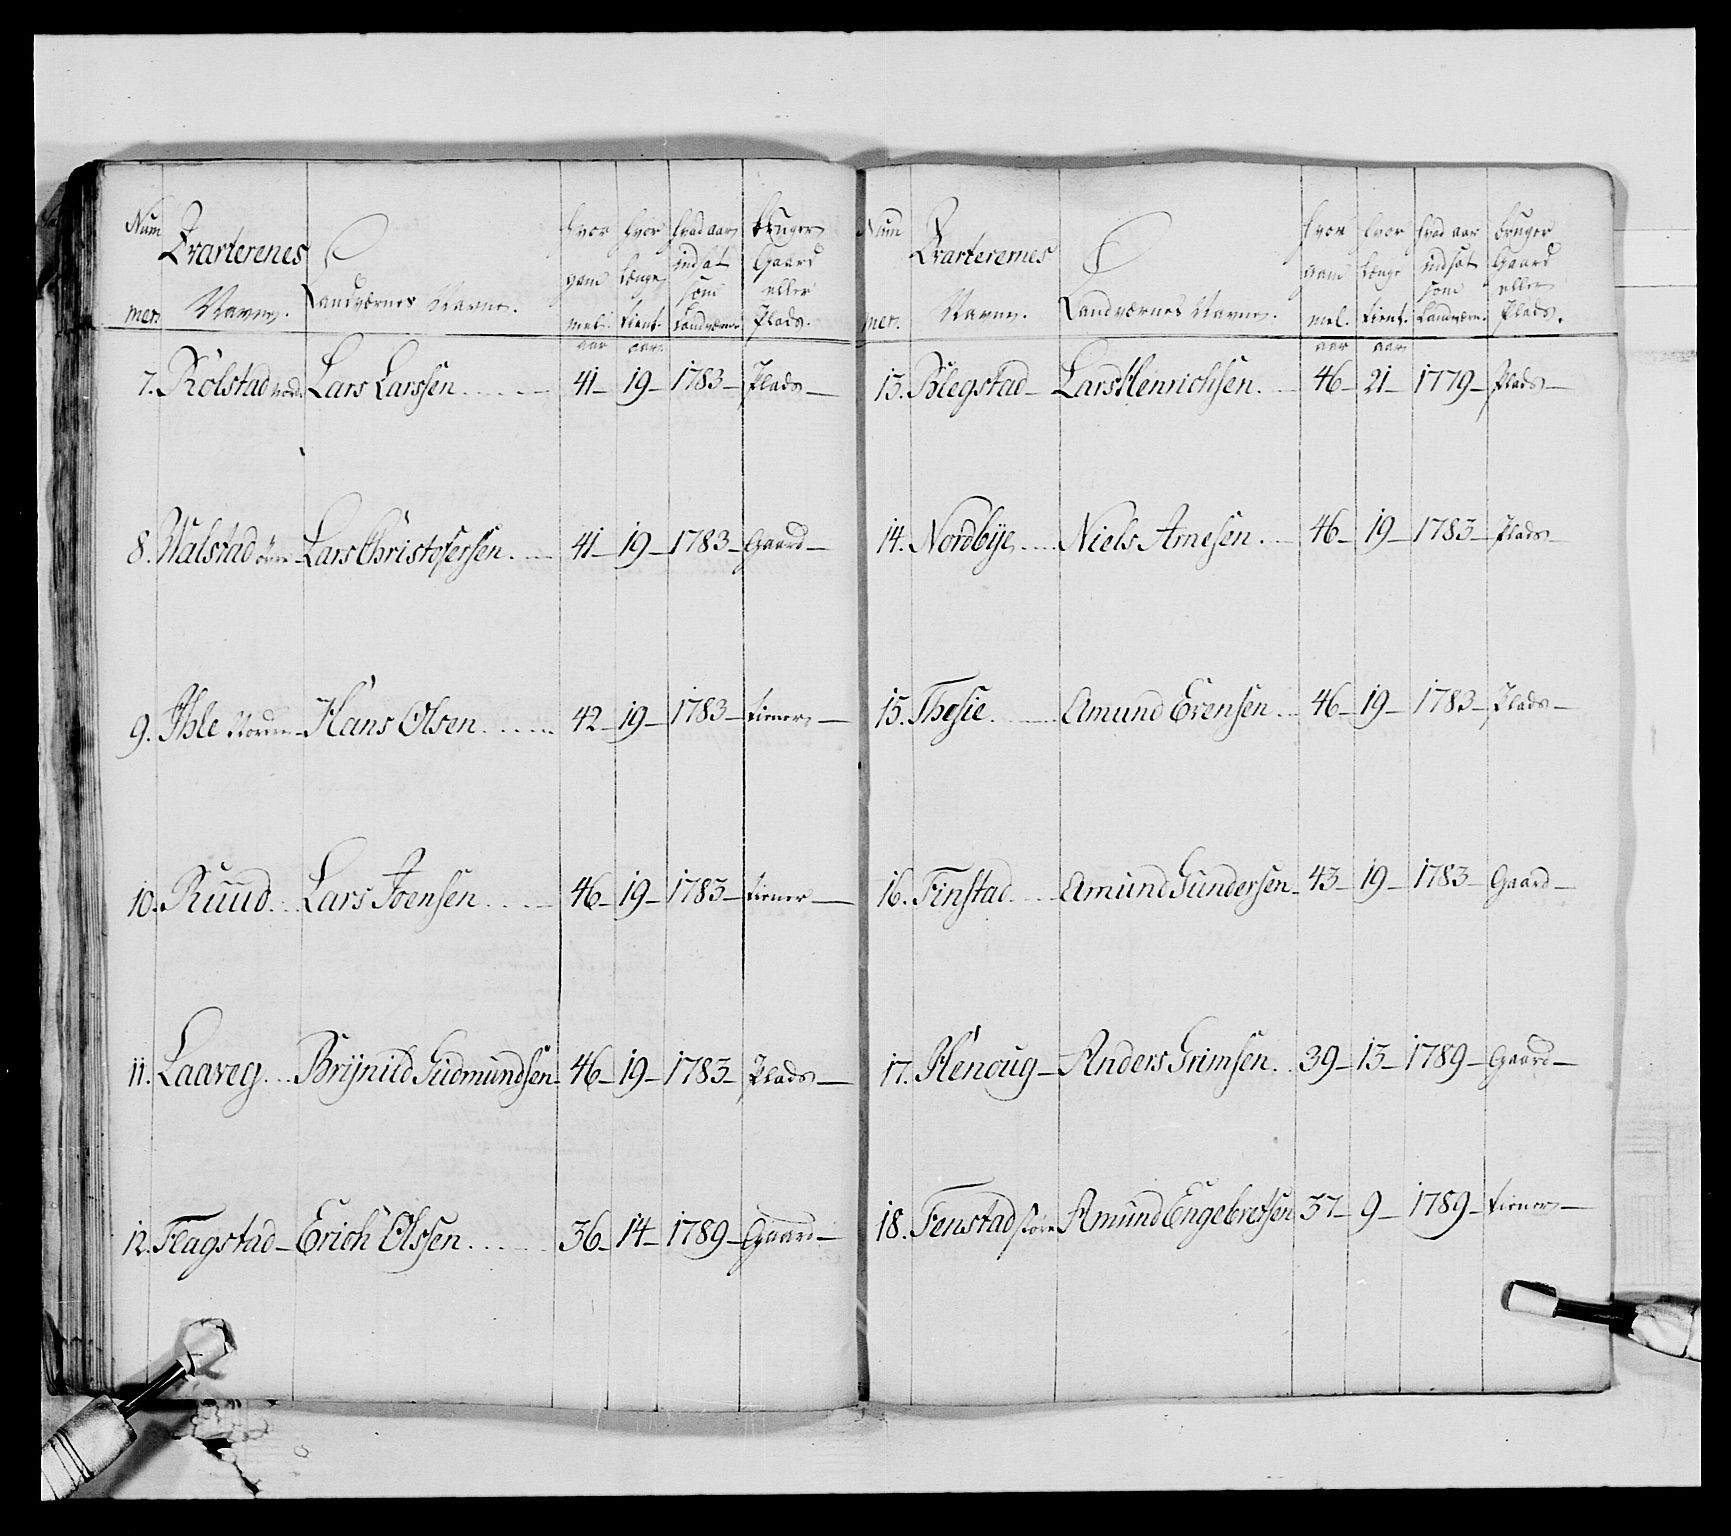 Num mer. Qvarterenes Navne. Landværnes Navne. hvor gam mel. aar hvor længe tient. aar hvad aar indsat som Landværn. bruger Gaard eller Plads.
7. Rolstad nord. Lars Larssen 41 19 1783 Plads
8. Walstad Lars Christofersen 41 19 1783 Gaard
9. Ihle Nordre Hans Olsen 42 19 1783 tiener
10. Ruud Lars Joensen 46 19 1783 tiener
11. Laaveg Brijnild Gudmundsen 46 19 1783 Plads
12. Flagstad Erich Olssen 36 14 1789 Gaard
Num mer. Qvarterernes Navne. Landværnes Navne. hvor gam mel. aar hvor længe tient. aar hvad aar indsat som Landværn. bruger Gaard eller Plads.
13. Blegstad Lars Henrichsen 46 21 1779 Plads
14. Nordbije Niels Arnesen 46 19 1783 Plads
15. Thesie Amund Evensen 46 19 1783 Plads
16. Finstad Amund Gundersen 43 19 1783 Gaard
17. Henoug Anders Grimsen 39 13 1789 Gaard
18. Fenstad store Amund Engebretsen 37 9 1789 tiener